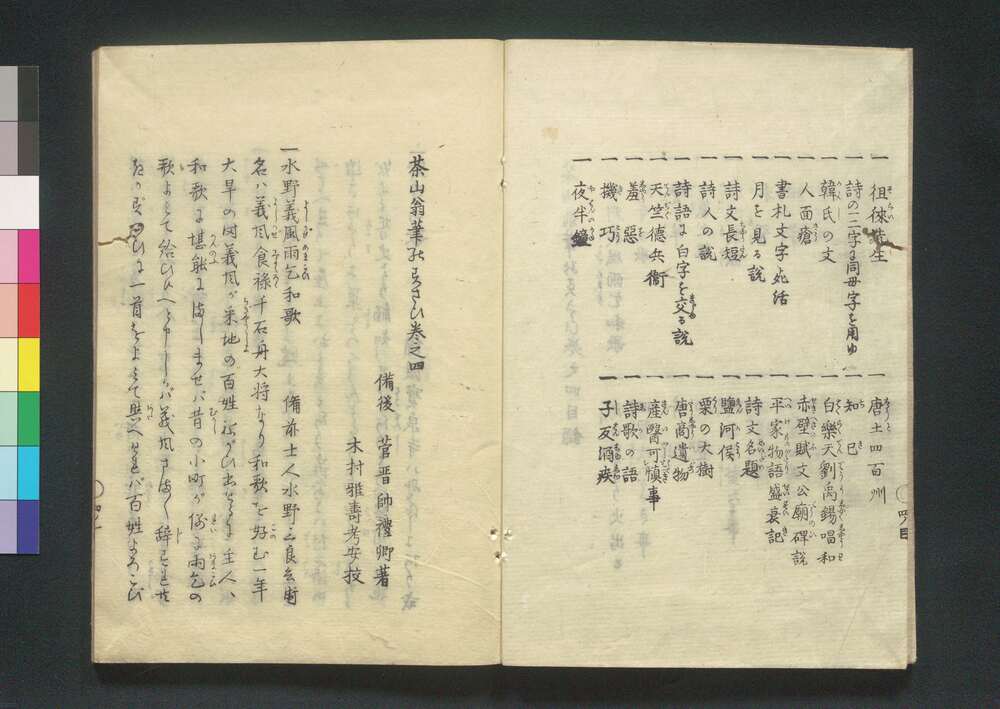 一徂徠先生
一詩の三字に同毋字を用ゆ
一韓氏の文
一人面瘡
一書札文字死活
一月を見る説
一詩文長短
一詩人の説
一詩語に白字を交る説
一天竺德兵衞
一羞惡
一機巧
一夜半鐘
一唐土四百州
一知己
一白樂天劉禹錫唱和
一赤壁賦文公廟碑説
一平家物語盛衰記
一詩文名題
一鹽河侯
一栗の大樹
一唐商遺物
一産醫可愼事
一詩歌の語
一子反酒疾
四目
茶山翁筆のすさひ卷之四
備後 菅晋帥禮卿著
木村雅壽考安挍
一水野義風雨乞和歌 備前士人水野三良兵衞
名ハ義風食祿千石舟大將なり和歌を好む一年
大旱の時義風が釆地の百姓ねがひ出るに主人ハ
和歌に堪能にましませバ昔の小町が例に雨乞の
歌よみて給ひ義風
一首をよみて與へ百姓よろこび
四ノ一